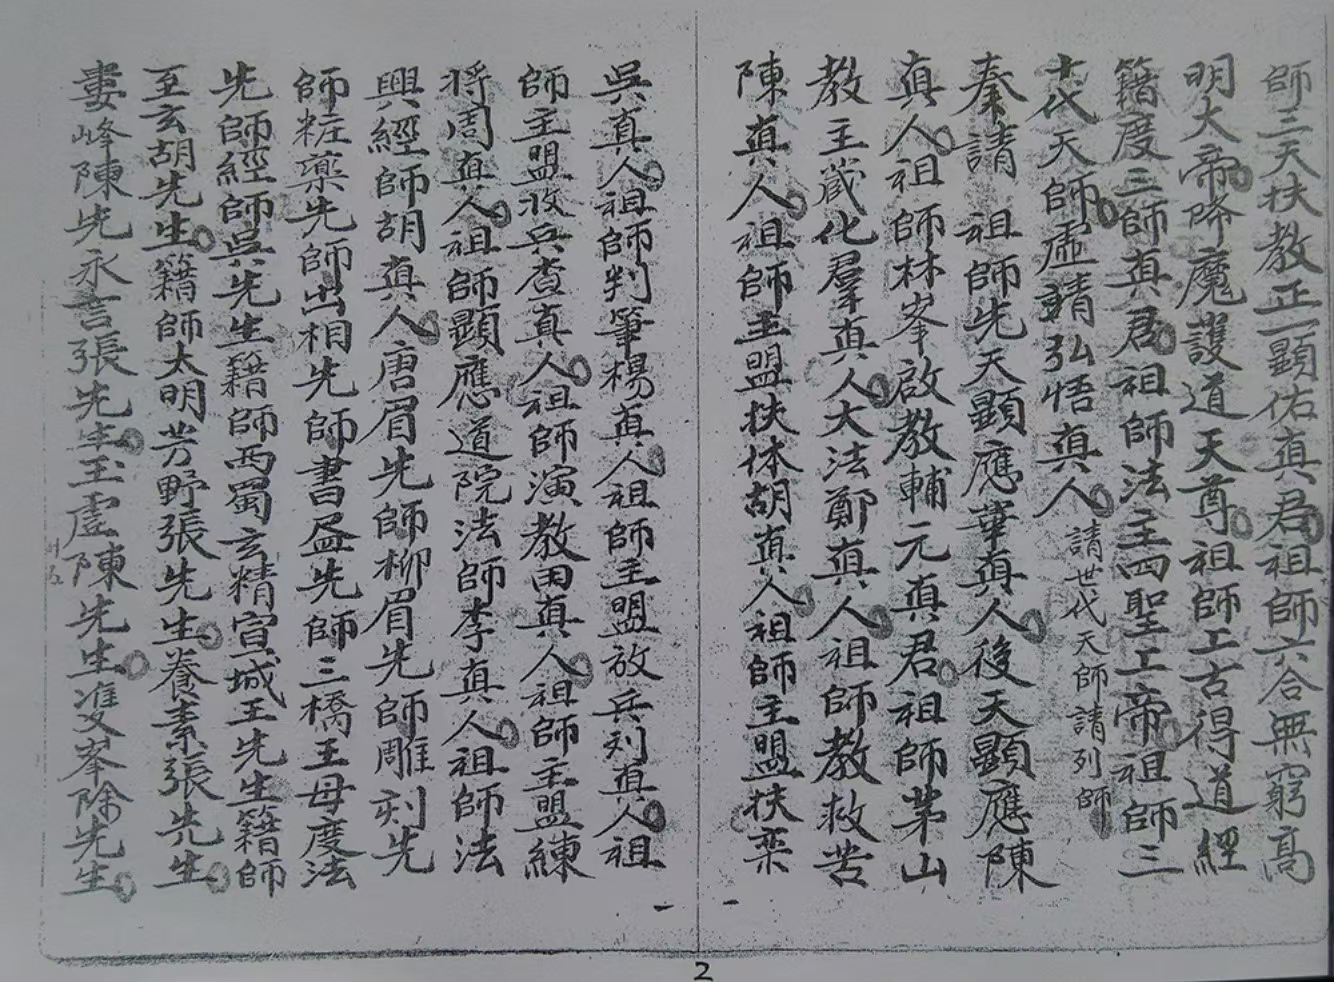 師三天扶教正一顯佑真君祖師六合無窮高
明大帝降魔護道天尊祖師上古得道經
籍度三師真君祖師法主四聖上帝祖師三
十代天師虛靖弘悟真人請世代天師請列師
奏請 祖師先天顯應華真人後天顯應陳
真人祖師林峯啟教輔元真君祖師茅山
教主嵗化羣真人大法鄭真人祖師教救苦
陳真人祖師主盟扶体胡真人祖師主盟扶栾
吳真人祖師判筆楊真人祖師主盟放兵列真人祖
師主盟收兵查真人祖師演教田真人祖師主盟練
將周真人祖師顯應道院法師李真人祖師法
興經師胡真人唐眉先師柳眉先師雕刻先
師粧藥先師出相先師書昷先師三橋王母度法
先師經師吳先生籍師西蜀玄精宣城王先生籍師
至玄胡先生籍師太明芳野張先生養素張先生
婁峰陳先永言張先生玉虛陳先生岑除先生
2